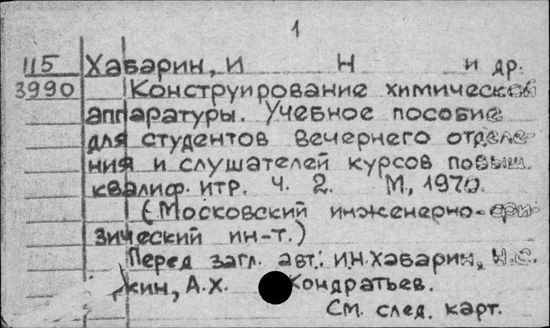 1
115 Хабарин, И Н и др.
3990 Конструирование химической
аппаратуры. Учебное пособие
для студентов вечернего отделе-
ния и слушателей курсов повыш.
квалиф. итр. Ч. 2. М., 1970.
(Московский инженерно-физи-
зический ин-т.)
Перед загл. авт.: И.Н. Хабарин, Н.С.
кин, А.Х. Кондратьев.
См. след. карт.